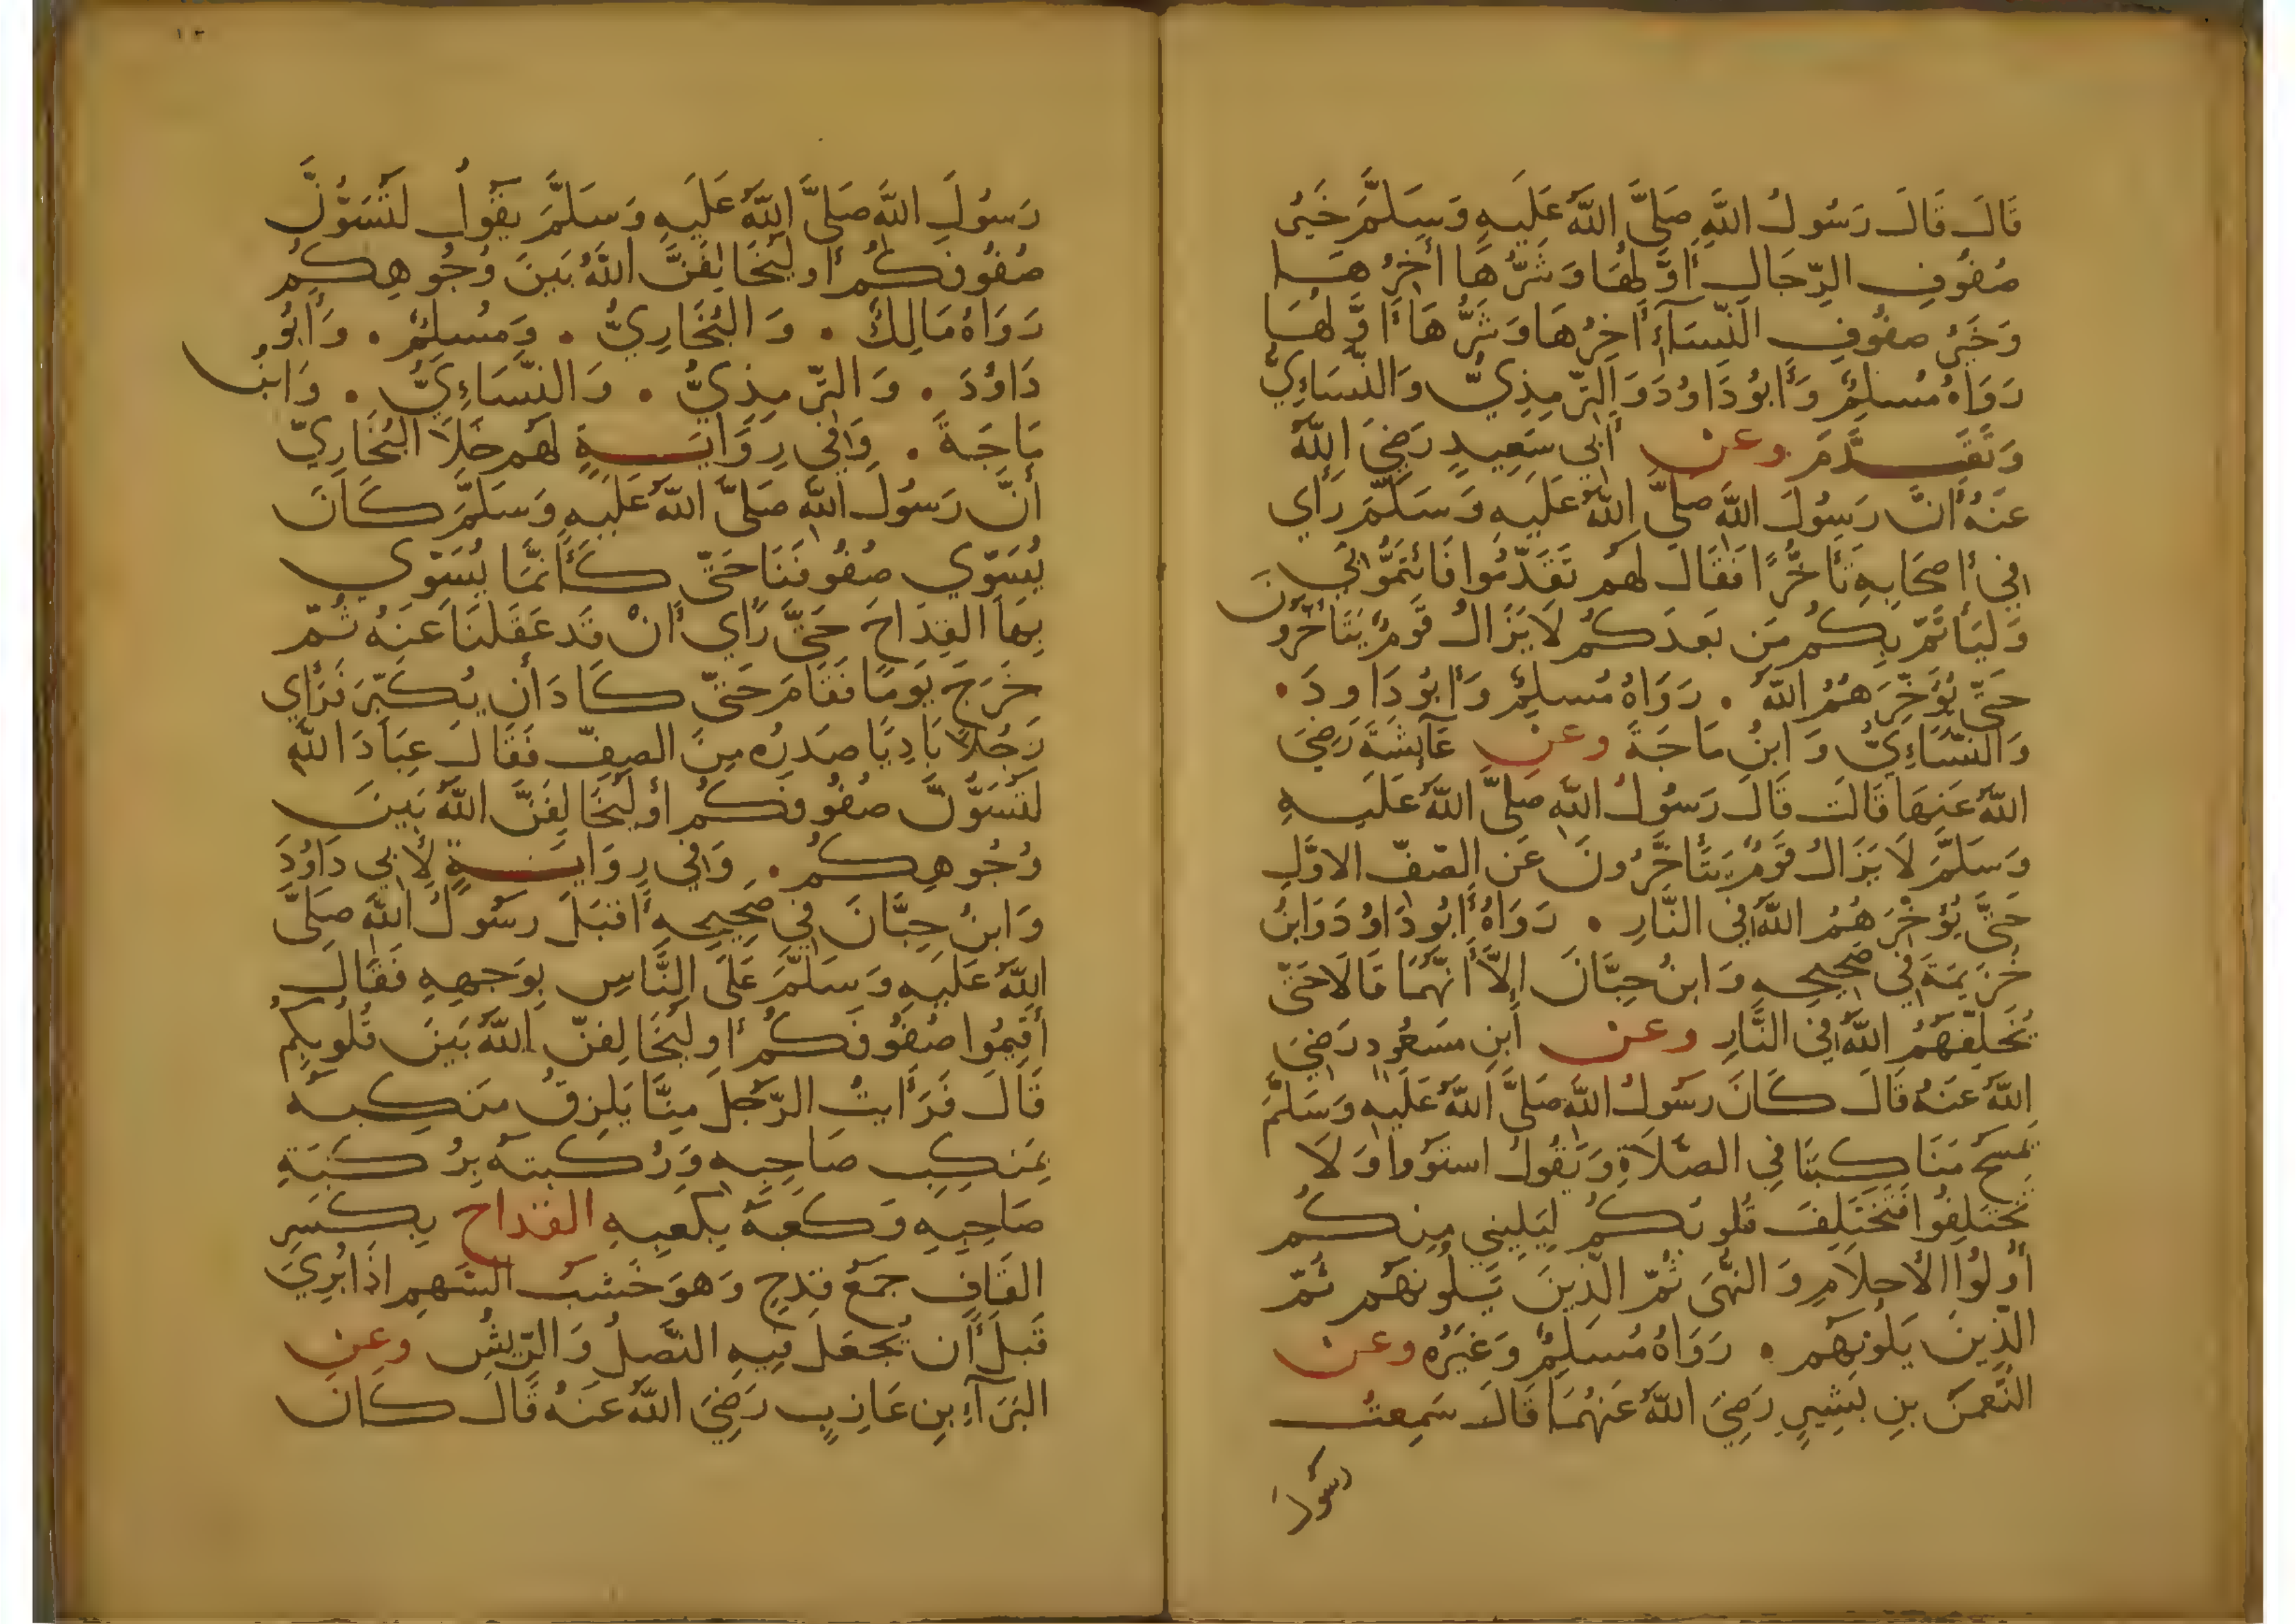 قَالَ قَالَ رَسُولُ اللَّهِ صَلَّى اللَّهُ عَلَيهِ وَسَلَّمَ خَيرُ
صُفُوفِ الرِّجَالِ أَوَّلُهَا وَشَرُّهَا أَخِرُهَا
وَخَيرُ صفُوفِ النِّسَآءِ أَخِرُهَا وَشَرُّهَا أَوَّلُهَا
رَوَاهُ مُسلِمٌ وَأَبُو دَاوُدَ وَالتِّرمِذِيُّ وَالنَّسَاءِيُّ
وَتَقَدَّمَ وعن أَبِي سَعِيدٍ رَضِيَ اللَّهُ
عَنهُ أَنَّ رَسُولَ اللَّهِ صَلَّى اللَّهُ عَلَيهِ وَسَلَّمَ رَأَي
فِي أَصحَابِهِ تَأَخُّرًا فَقَالَ لَهُم تَقَدَّمُوا فَائتَمُّوا بِي
وَليَأتَمَّ بِكُم مَن بَعدَكُم لَا يَزَالُ قَومٌ يَتَأَخَّرُونَ
حَتَّى يُؤَخِّرَهُمُ اللَّهُ . رَوَاهُ مُسلِمٌ وَأَبُو دَاودَ .
وَالنَّسَاءِيُّ وَابنُ مَاجَةَ وعن عَآئِشَةَ رَضِيَ
اللَّهُ عَنهَا قَالَت قَالَ رَسُولُ اللَّهِ صَلَّى اللَّهُ عَلَيهِ
وَسَلَّمَ لَا يَزَالُ قَومٌ يَتَأَخَّرُونَ عَنِ الصَّفِّ الاوَّلِ
حَتَّى يُؤَخِّرَهُمُ اللَّهُ فِي النَّارِ . رَوَاهُ أَبُو دَاوُدَ وَابنُ
خُزَيمَةَ فِي صَحِيحِهِ وَابنُ حِبَّانَ إِلَّا أَنَّهُمَا قَالَا حَتَّى
يُخَلِّفَهُمُ اللَّهُ فِي النَّارِ وعن أَبنِ مَسعُودٍ رَضِيَ
اللَّهُ عَنهُ قَالَ كَانَ رَسُولُ اللَّهِ صَلَّى اللَّهُ عَلَيهِ وَسَلَّمَ
يَمسَحُ مَنَاكِبَنَا فِي الصَّلَاةِ وَيَقُولُ استَوُوا وَلَا
تَختَلِفُوا فَتَختَلِفَ قُلُوبُكُم لِيَلِيَنِي مِنكُم
أُولُوا الأَحلَامِ وَالنُّهَى ثُمَّ الَّذِينَ يَلُونَهُم ثُمَّ
الَّذِينَ يَلُونَهُم . رَوَاهُ مُسلِمٌ وَغَيرُهُ وعن
النُّعمَنَ بنِ بَشِيرٍ رَضِيَ اللَّهُ عَنهُمَا قَالَ سَمِعتُ
رَسُولَ
١٣
رَسُولَ اللَّهِ صَلَّى اللَّهُ عَلَيهِ وَسَلَّمَ يَقُولُ لَتُسَوُّنَّ
صُفُوفَكُم أَو لَيُخَالِفَنَّ اللَّهُ بَينَ وُجُوهِكُم
رَوَاهُ مَالِكٌ . وَالبُخَارِيُّ . وَمُسلِمٌ . وَأَبُو
دَاوُدَ . وَالتِّرمِذِيُّ . وَالنَّسَاءِيُّ . وَابنُ
مَاجَةَ . وَفِي رِوَايَةٍ لَهُم خَلَا البُخَارِيَّ
أَنَّ رَسُولَ اللَّهِ صَلَّى اللَّهُ عَلَيهِ وَسَلَّمَ كَانَ
يُسَوِّي صُفُوفَنَا حَتَّى كَأَنَّمَا يُسَوِّي
بِهَا القِدَاحَ حَتَّى رَأَي أَنْ قَد عَقَلنَا عَنهُ ثُمَّ
خَرَجَ يَومًا فَقَامَ حَتَّى كَادَ أَن يُكَبِّرَ فَرَأَي
رَجُلًا بَادِيًا صَدرُه مِنَ الصفِّ فَقَالَ عِبَادَ اللَّهِ
لَتُسَوُّنَّ صُفُوفَكُم أَو لَيُخَالِفَنَّ اللَّهُ بَينَ
وُجُوهِكُم . وَفِي رِوَايَةٍ لِأَبِي دَاوُدَ
وَابنُ حِبَّانَ فِي صَحِيحِهِ أَقبَلَ رَسُولُ اللَّهِ صَلَّى
اللَّهُ عَلَيهِ وَسَلَّمَ عَلَى النَّاسِ بِوَجهِهِ فَقَالَ
أَقِيمُوا صُفُوفَكُم أَو لَيُخَالِفَنَّ اللَّهُ بَينَ قُلُوبِكُم
قَالَ فَرَأَيتُ الرَّجُلَ مِنَّا يَلزِقُ مَنكِبهُ
بِمَنكِبِ صَاحِبِهِ وَرُكبتهُ بِرُكبَةِ
صَاحِبِهِ وَكَعبهُ بِكَعبِهِ القداح بِكَسرِ
القَافِ جَمعُ قِدحٍ وَهوَ خَشَبُ السَّهمِ اذَا بُرِيَ
قَبلَ أَن يُجعَلَ فِيهِ النَّصلُ وَالرِّيشُ وعن
البَرَآءِ بنِ عَازِبٍ رَضِيَ اللَّهُ عَنهُ قَالَ كَانَ